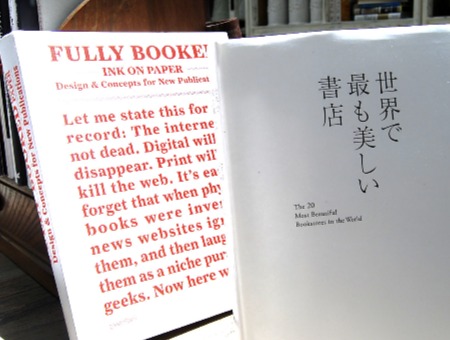 FULLY BOOKE
INK ON PAPER
Design & Concepts for New Publicat
Let me state this for
record: The interne
not dead. Digital will
disappear. Print will
kill the web. It's ea
forget that when phy
books were inve
news websites ign
them, and then laug
them as a niche pur
geeks. Now here w
Design & Concepts for New Publications
世界で
最も美しい
書店
The 20
Most Beautiful
Bookstores in the World